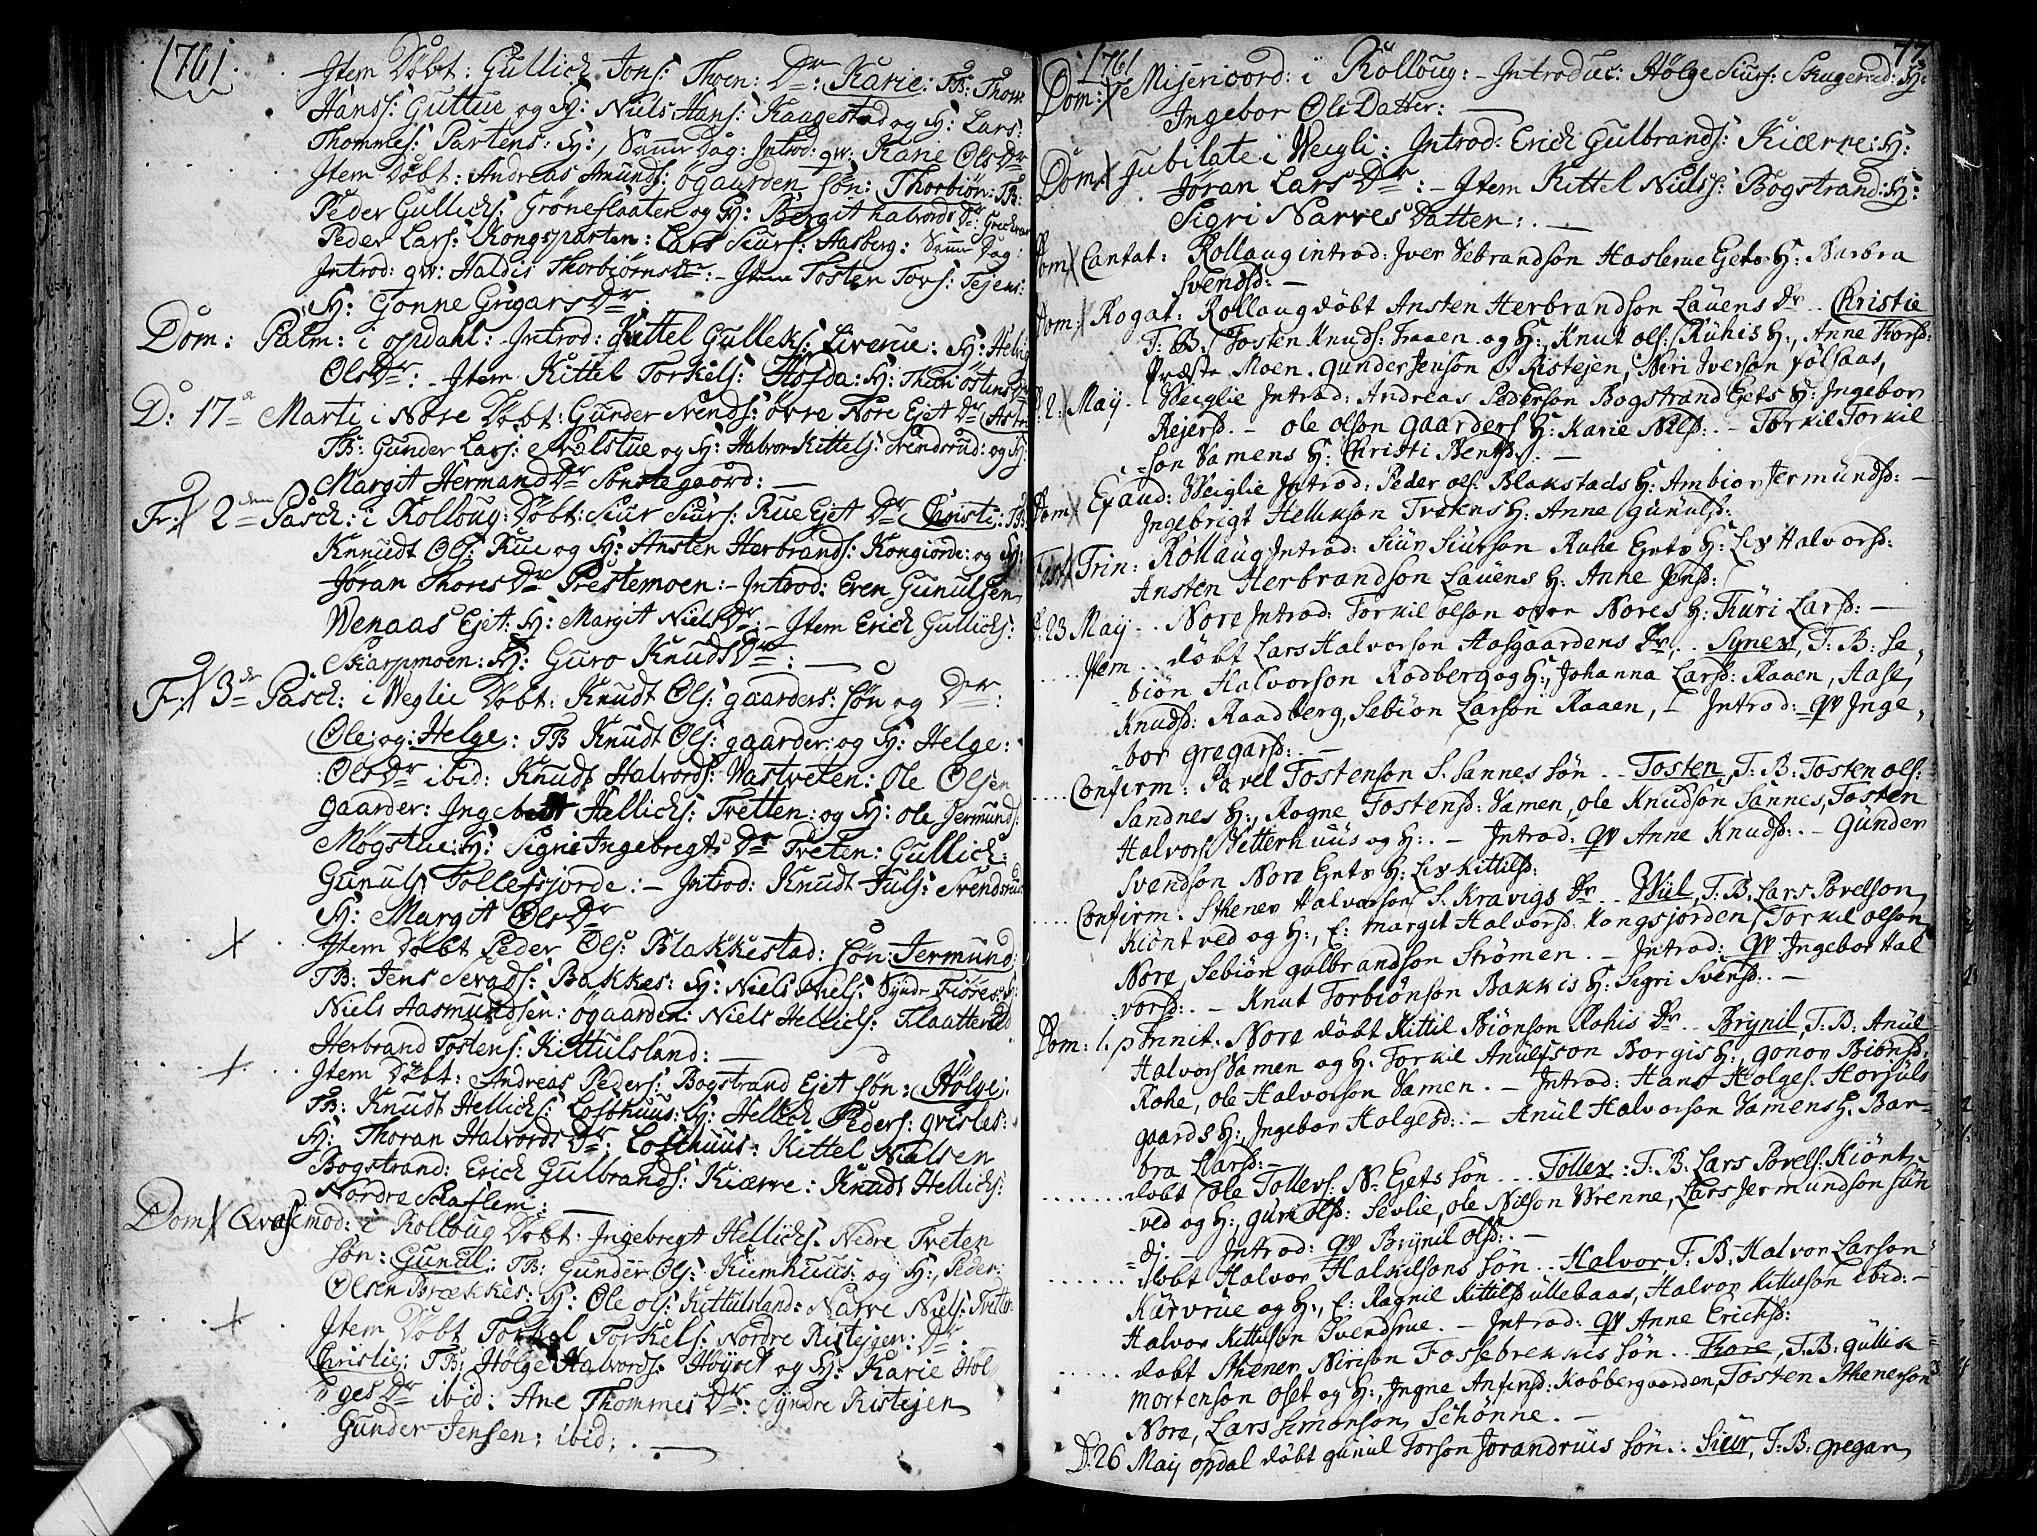 1761.
Item Döbt: Gullich Jons: Thoen: Dr: Karie: TB: Thom:
Hanss: Guttue og H: Niels Hans: Kaagestad og H: Lars:
Thommes: Partens: H:, Samm Dag: Introd: qv: Karie Ols Dr
Item Döbt: Andreas Amunds: Ögaarden Søn: Thorbiön: TB:
Peder Gullichs: Gröneflaaten og H: Bergit halvords Dr:
Peder Lars: Kongsparten: Lars Siurs: Aasberg: Samm Dag:
Introd: qv: Haldis Thorbiörns Dr: - Item Tosten Tovs: Tejens:
H: Gonne Grigars Dr:
Dom: Palm: i opdahl: Introd: Kittel Gulleks: Liverue: H: Helvig
Ols Dr: - Item Kittel Torkels: Hofda: H: Thuri östens Dr
D: 17de Marti i Nore Döbt: Gunder Svends: övre Nore Ejet Dr
TB: Gunder Lars: Nolstue og H: Halvor Kittels: Svendsrud: og H:
Margit Hermand Dr Sønstegaard: —
Fr: 2den Pasch: i Rolloug: Döbt: Siur Siurs: Rue Ejet Dr Christi: TB:
Knnudt Ols: Rue og H: Ansten Herbrands: Kongiorde: og H:
Jöran Thores Dr Prestemoen: - Introd: Even Gunulsen
Wenaas Ejet: H: Margit Niels Dr: - Item Erich Gullichs:
Skarpmoen: H: Guro Knuds Dr: —
Fr: 3de Pasch: i Weglie Döbt: Knudt Ols: gaarders: søn og Dr:
Ole: og: Helge: TB Knudt Ols: gaarder: og H: Helge:
Ols Dr ibid: Knudt Halvords: Wastveten: Ole Olsen
gaarder: Ingebret Hellichs: Tvetten: og H: ole Jermunds:
Møgstue: H: Signe Ingebregts Dr Tveten: Gullich:
Gunuls Tollefsjorde: - Introd: Knudt Juls: Svendsrud
H: Margit Ols Dr
Item Döbt Peder Ols: Blakkestad: søn: Jermund:
TB: Jens Bakkes: H: Niels Niels: Syndr Fiöres: H:
Niels Aasmundsen: ögaarden: Niels Hellichs: Flaatterud
Herbrand Tostens: Kittulsland: —
Item Döbt: Andreas Peders: Bogstrand Ejet søn: Hölge:
TB: Knudt Hellichs: Lofthuus: H: Hellich Peders: qvisles:
H: Thoran Halvords Dr: Lofthuus: Kittel Nielsen
Bogstrand: Erich Gulbrands: Kiærre: Knudt Hellichs:
Nordre Schaflem: —
Dom: Qvasimod: i Rolloug Döbt: Ingebregt Hellichs. Nedre Tveten
søn: Gunül: TB: Gunder Ols: Kiemhuus: og H: Peder:
Olsen Brækkes: H: Ole ols: Kittulsland: Narve Niels: Tvetten
Item Döbt Torkel Torkels: Nordre Ristejgen: Dr
Christie: TB: Hölge Halvords: Höyset og H: Karie Höl
ges Dr ibid: Ane Thommes Dr: Syndre Ristejen
Gunder Jensen: ibid: —
1761
77
Dom: Misericord: i Rolloug: - Introduc: Hølge Siurs: Skugerud: H:
Ingebor Ols Datter: —
Dom: Jubilate i Weigli: Introd: Erich Gulbrands: Kiærre: H:
Jöran Lars Dr: - Item Kittel Niels: Bogstrand: H:
Sigri Narves Datter: —
Dom: Cantat: Rollaug introd: Iver Sebrandson Haslerue Gets H: Barbra
Svendsd: —
Dom: Rogat: Rollaug döbt Ansten Herbrandson Lauens Dr.. Christie
T. B: Tosten Knuds: Fraaen og H:, Knut ols: Ruhis H:, Anne Thorsd:
Præste Moen. Gunder Jenson S. Ristejen, Niri Iverson follaas,
D. 2: Maij - Weiglie Introd: Andreas Pederson Bogstrand Gets H: Ingebor
Rejersd. - ole olson gaarders H: Karie Nilsd: - Torkil Torkil
son Vamens H: Christi Bentsd: —
Dom: Exaud: Weiglie Introd: Peder ols: Blakstads H: Ambior Jermundsd: -
Ingebrigt Hellikson Tvetens H: Anne Gunulsd:
Fest: Trin: Rollaug Introd: Siur Siurson Ruhe Gets H: Liv Halvorsd:
Ansten Herbrandson Lauens H: Anne Jensd:
D. 23 Maij .. Nore Introd: Torkil olson over Nores H: Thuri Larsd: —
Item .. döbt Lars Halvorson Aasgaardens Dr .. Synev, T. B: Se,
biön Halvorson Rodberg og H:, Johanna Larsd: Raaen, Aase,
Knudsd: Raadberg, Sebiön Larson Raaen, - Introd: qv Inge,
bor gregarsd: —
Confirm: Povel Tostenson S. Sannes søn .. Tosten, T. B: Tosten ols:
Sandnes H:, Ragne Tostensd: Vamen, ole Knudson Sannes, Tosten
Halvors: Vetterhuus og H:. - Introd: qv Anne Knudsd:. - Gunder
Svendson Nore Gets H: Liv Kittilsd:
Confirm. Sthener Halvorson S. Kravigs Dr .. Wül, T. B. Lars Povelson
Kiöntved og H:, E: margit Halvorsd: Kongsjorden, Torkil olson
Nore, Sebiön gulbrandson Strömen. - Introd: qv Ingebor Hal
vorsd:. - Knut Torbiönson Bakkis H: Sigri Svensd:. —
Dom: 1. p Trinit. Nore döbt Kittil Biönson Rohis Dr .. Brynil, T. B: Anul
Halvors Vamen og H: Torkil Anulfson Borgis H:, gonor Biönsd:
Rohe, ole Halvorson Vamen. - Introd: Hans Holges. Horjuls
gaards H:, Ingebor Holgesd:. - Anul Halvorson Vamens H: Bar-
bra Larsd:. —
döbt ole Tollevs: N. Gets søn ... Tollev: T. B: Lars Povels: Kiönt,
ved og H:, guri olsd: Sevlie, ole Nilson Wrenne, Lars Jermundson Sün
dj. - Introd: qv Brynil olsd:. —
döbt Halvor Halkilsons søn .. Halvor, T. B: Halvor Larson
Kürvrue og H:, E: Ragnil Kittilsd Üllebaas, Halvor Kittilson ibid: -
Halvor Kittilson Svendsrue. - Introd: qv Anne Ericksd:
döbt Sthener Nirison Fossebrekkis søn .. Thore, T. B. güllik
Mortenson Oset og H:, Ingne Anfinsd: Kobbergaarden, Tosten Sthenerson
Nore, Lars Simonson Schönne. —
D: 26 Maij opdal döbt gunul Torson Jorandruis søn .. Siur, T. B. gregar